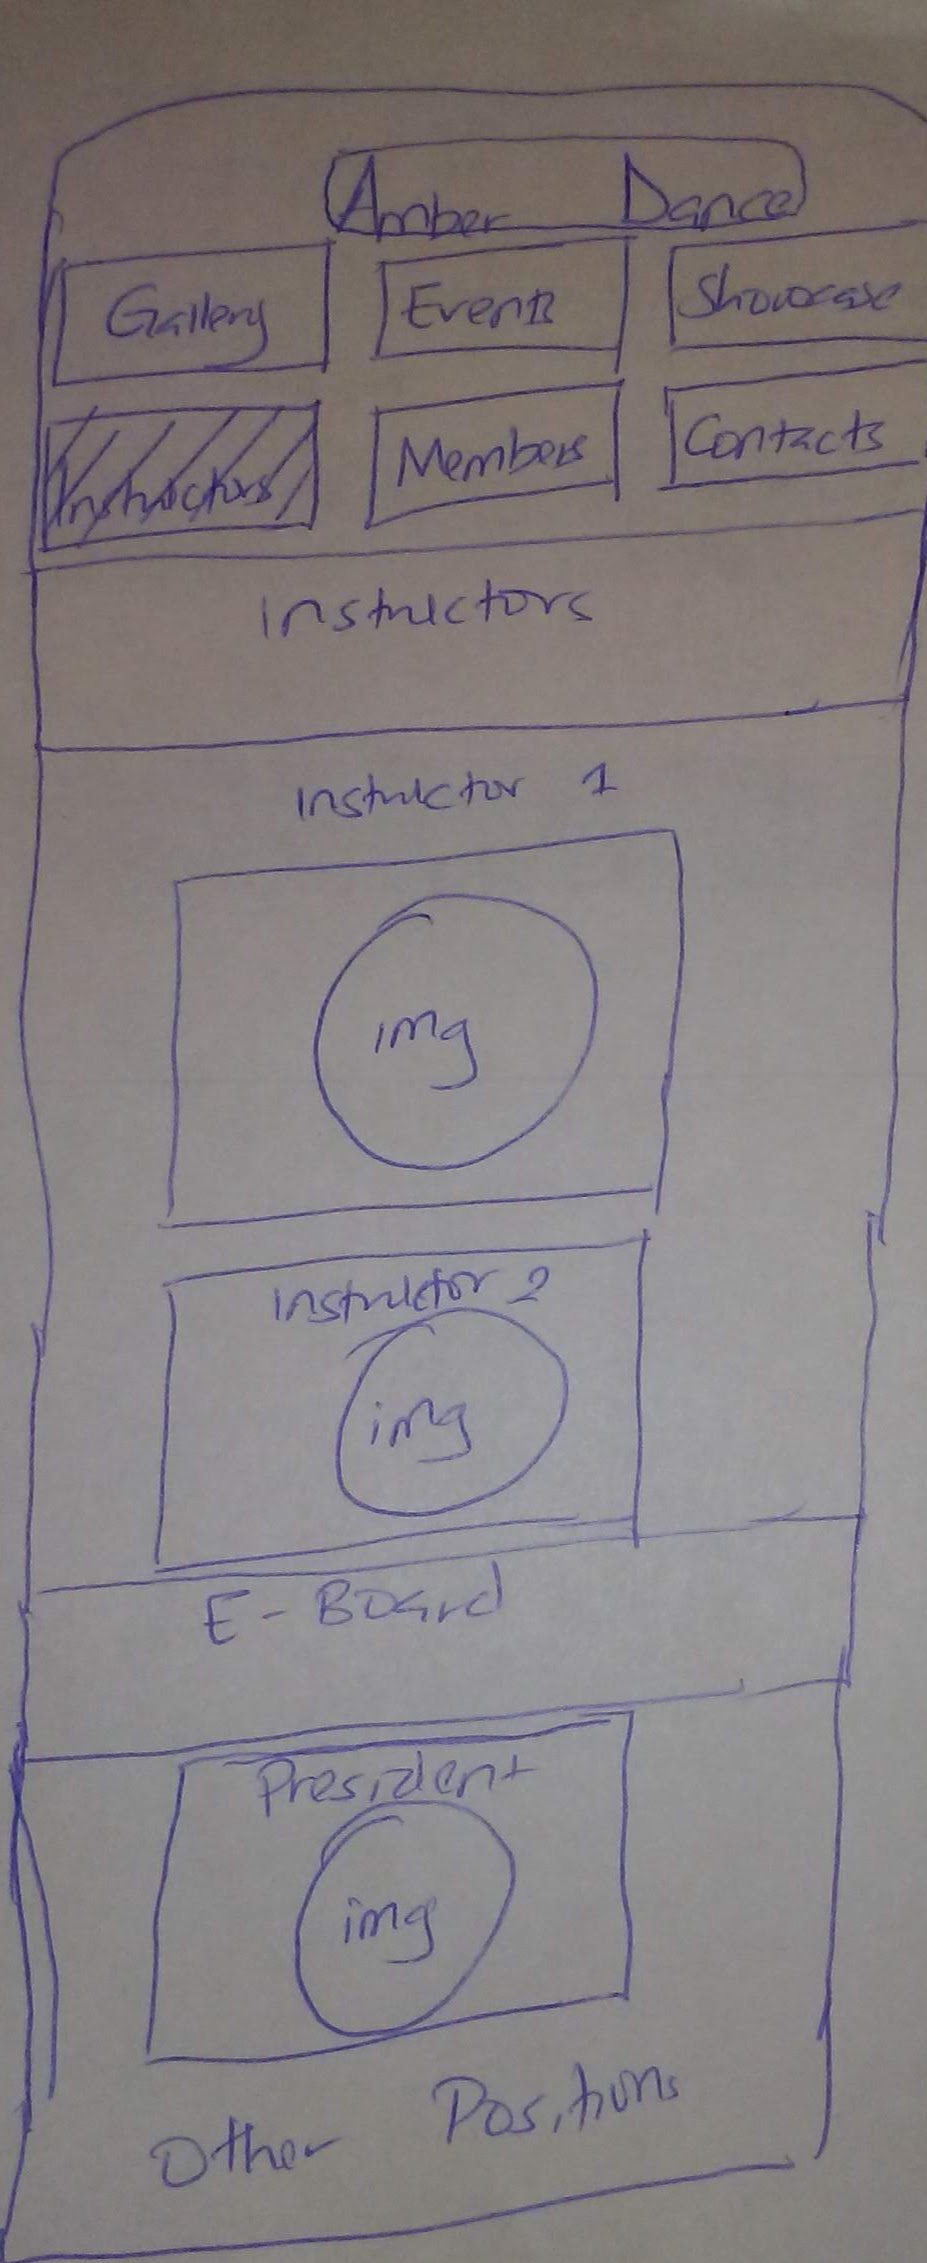 Amber Dance
Gallery Events Showcase
Instructors Members Contacts
instructors
instructor 1
img
instructor 2
img
E-Board
President
img
Other Positions